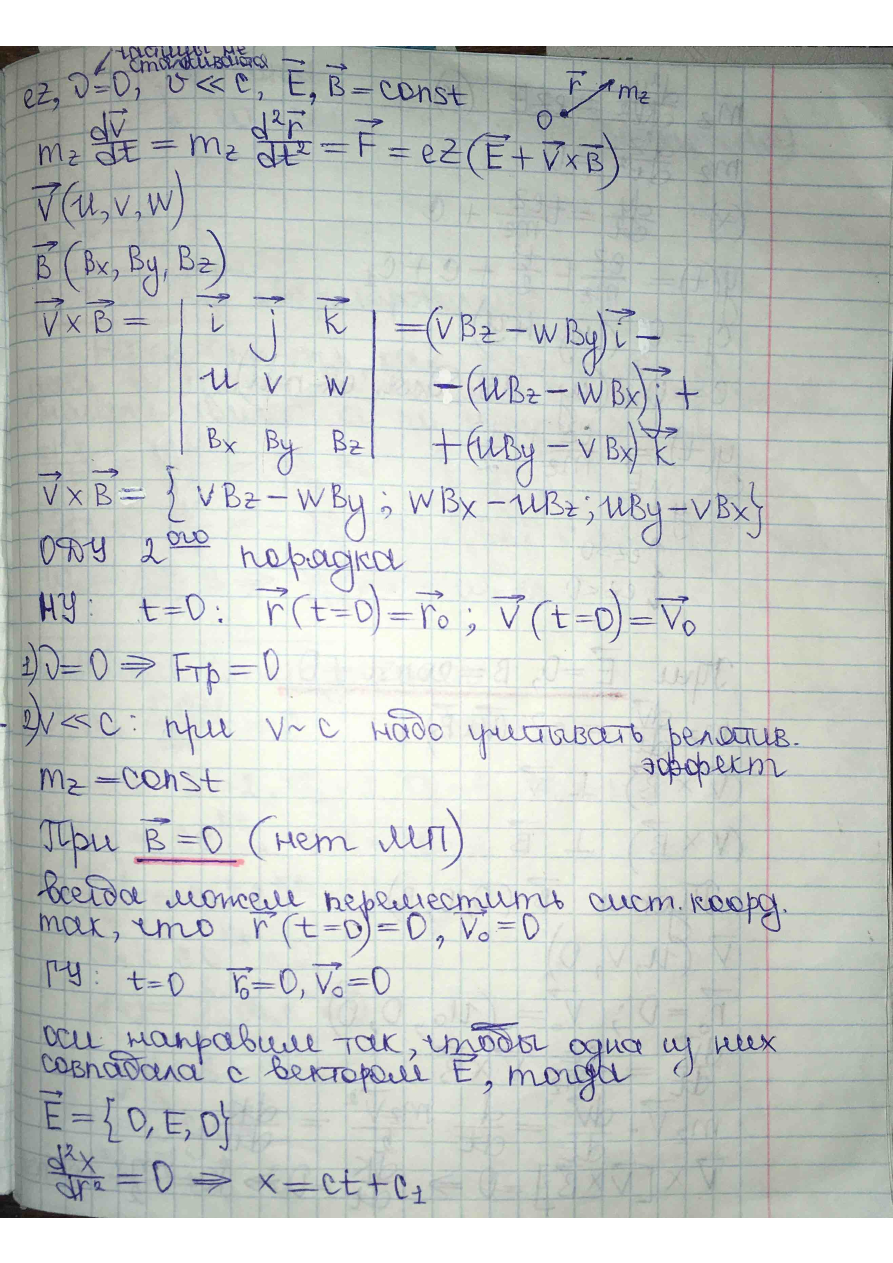 частицы не
сталкиваются
ez, ν=0, v ≪ c, E⃗, B⃗ = const
r⃗ m_z
O
m_z dv⃗/dt = m_z d²r⃗/dt² = F⃗ = eZ(E⃗ + V⃗×B⃗)
V⃗(u, v, w)
B⃗(Bx, By, Bz)
V⃗×B⃗ = | i⃗ j⃗ k⃗ | = (vBz − wBy)i⃗ −
| u v w | −(uBz − wBx)j⃗ +
| Bx By Bz | +(uBy − vBx)k⃗
V⃗×B⃗ = {vBz − wBy; wBx − uBz; uBy − vBx}
ОДУ 2ого порядка
НУ: t=0: r⃗(t=0)=r⃗₀; V⃗(t=0)=V⃗₀
1) ν=0 ⇒ Fтр=0
2) v≪c: при v~c надо учитывать релятив.
эффект
m_z = const
При B⃗=0 (нет МП)
всегда можем переместить сист. коорд.
так, что r⃗(t=0)=0, V⃗₀=0
ГУ: t=0 r⃗₀=0, V⃗₀=0
оси направим так, чтобы одна из них
совпадала с вектором E⃗, тогда
E⃗ = {0, E, 0}
d²x/dt² = 0 ⇒ x = ct + c₁